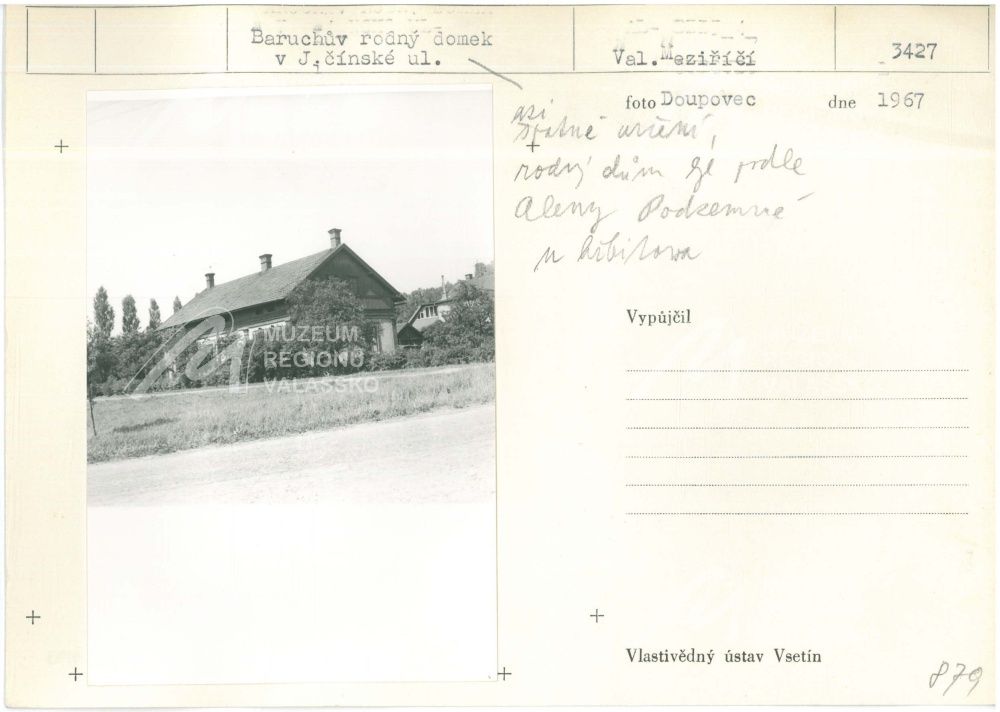 Baruchův rodný domek
v Jičínské ul.
Val. Meziříčí
3427
foto Doupovec dne 1967
asi
špatné určení,
rodný dům je podle
Aleny Podzemné
u hřbitova
MUZEUM
REGIONU
VALAŠSKO
Vypůjčil
Vlastivědný ústav Vsetín
879